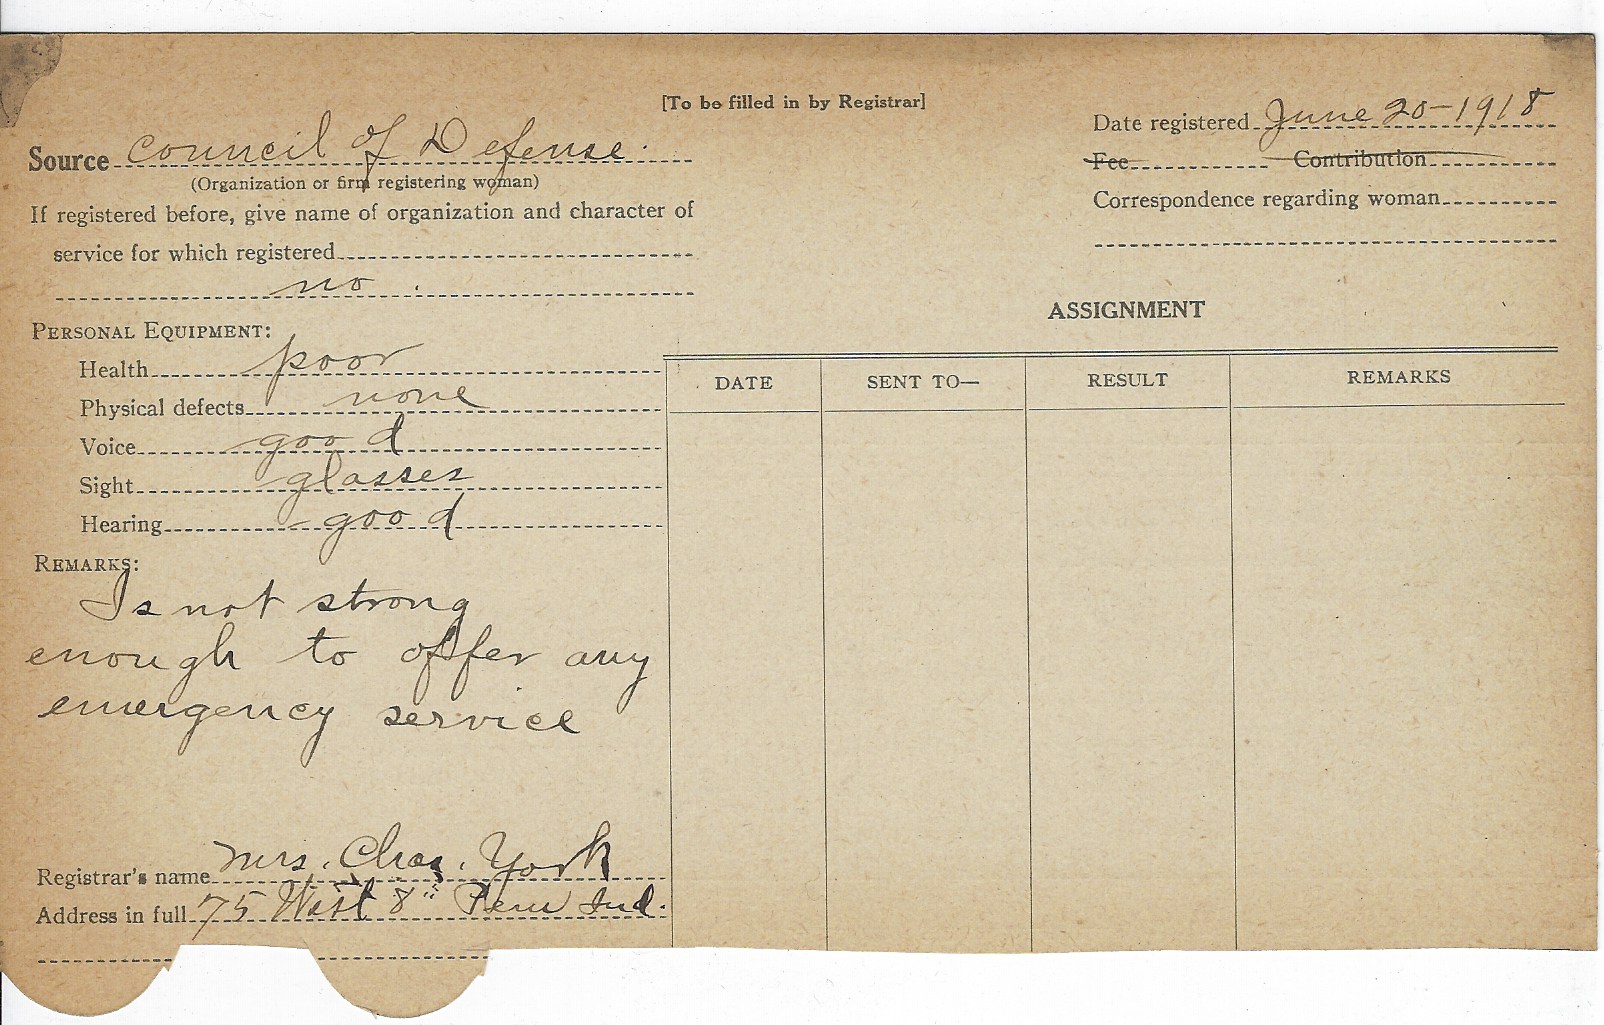 [To be filled in by Registrar]
Source council of Defense.
(Organization or firm registering woman)
If registered before, give name of organization and character of
service for which registered
no.
Date registered June 20-1918
Fee Contribution
Correspondence regarding woman
PERSONAL EQUIPMENT:
Health poor
Physical defects none
Voice good
Sight glasses
Hearing good
REMARKS:
Is not strong
enough to offer any
emergency service
Registrar's name Mrs. Chas. York
Address in full 75 West 8" Peru Ind.
ASSIGNMENT
DATE SENT TO— RESULT REMARKS